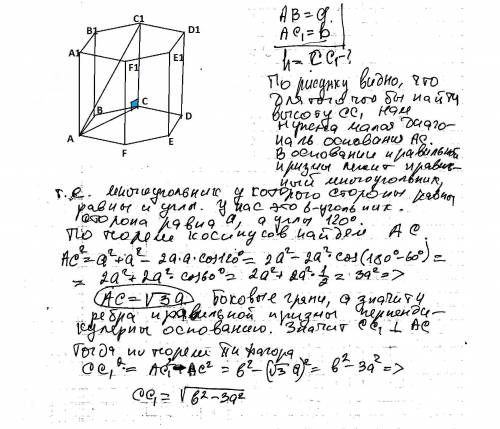 C1
B1
D1
A1
E1
F1
B
C
D
A
F
E
AB = a.
AC₁ = b
h = CC₁ - ?
По рисунку видно, что
для того что бы найти
высоту CC₁ нам
нужна малая диаго-
наль основания AC.
В основании правильной
призмы лежит правиль-
ный многоугольник,
т.е. многоугольник у которого стороны равны
равны и углы. У нас это 6-угольник.
сторона равна a, а углы 120°.
По теореме косинусов найдем AC.
AC² = a² + a² - 2a·a·cos120° = 2a² - 2a²·cos(180° - 60°) =
= 2a² + 2a²·cos60° = 2a² + 2a²·½ = 3a² =>
AC = √3a. Боковые грани, а значит и
ребра правильной призмы перпенди-
кулярны основанию. Значит CC₁ ⊥ AC
Тогда по теореме Пифагора
CC₁² = AC₁² - AC² = b² - (√3 a)² = b² - 3a² =>
CC₁ = √b² - 3a²